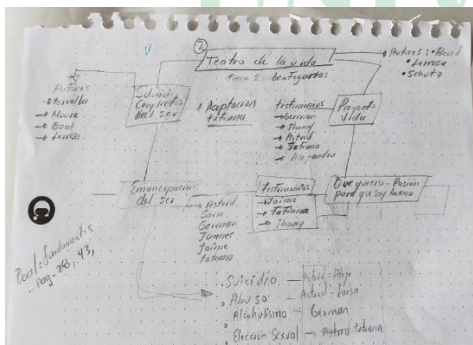 ②
Teatro de la vida
Autores: Boal
Larrosa
Schutz
Autores
Torralba
Boal
Solución
del ser
Aceptacion
tatiana
testimonios
German
Jhony
Astrid
Tatiana
Alejandra
Proyecto
Vida
Emancipación
del ser
Astrid
Sara
German
Juanes
Jaime
tatiana
testimonios
Jaime
Tatiana
Jhony
Que quiero - Pasión
para que soy bueno
Boal: fundamentos
Pag - 28, 43,
Suicidio
Abuso
Alcoholismo — German
Elección Sexual — Astrid. tatiana